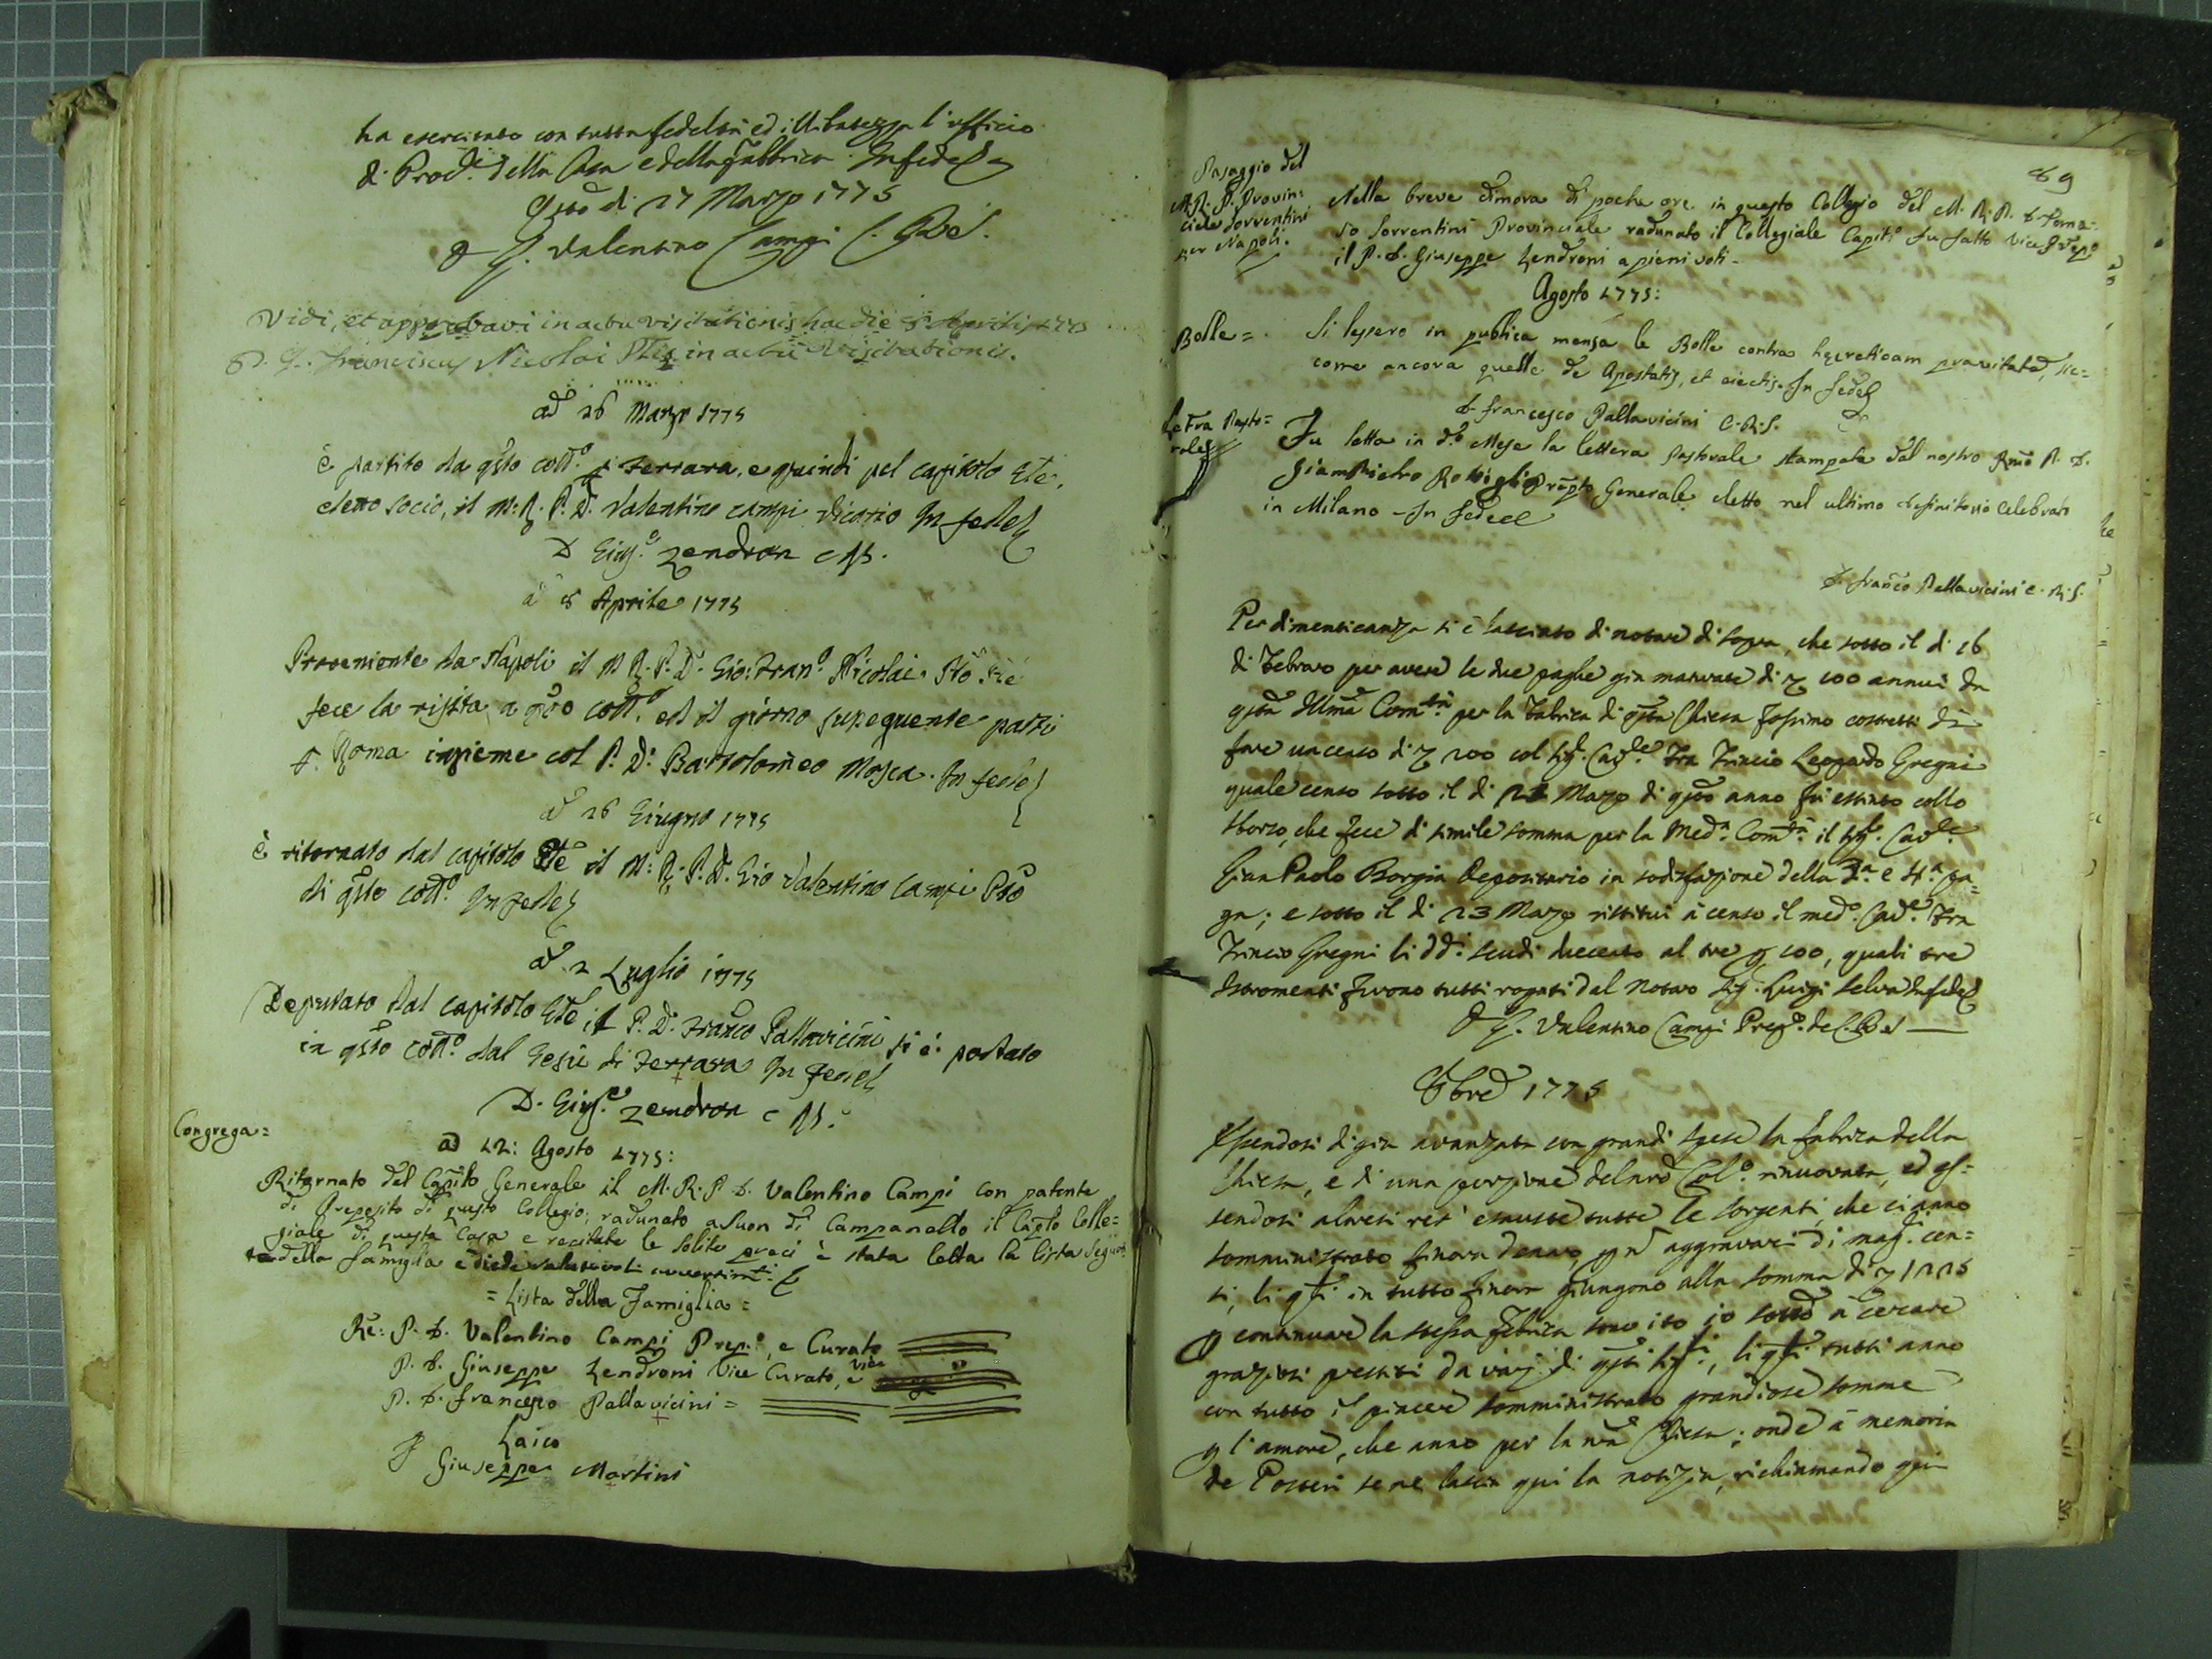 ha esercitato con tutta fedeltà ed illibatezza l'officio
di Procre della Casa e della fabbrica. In fede
Qsto di 27 Marzo 1775
D. G. Valentino Campi C.
Vidi, et approbavi in actu visitationis hac die 8 Aprilis 1775
D. Franciscus Nicolai in actu Visitationis.
ad 26 Marzo 1775
è partito da qsto coll.o p Ferrara, e quindi pel capitolo Gle.
eletto socio, il M: R. P. D. Valentino Campi Vicario In fede
D Gius.e Zendron CRS.
a 8 Aprile 1775
Proveniente da Napoli il M R. P. D. Gio: Fran.o Nicolai
fece la visita a qsto coll.o, ed il giorno suseguente partì
p. Roma insieme col P. D. Bartolomeo Mosca. In fede
a 26 Giugno 1775
è ritornato dal capitolo Gle il M: R. P. D. Gio Valentino Campi
di qsto coll.o In fede
ad 2 Luglio 1775
Deputato dal capitolo Gle il P. D. Franco Pallavicini si è portato
in qsto coll.o dal Gesù di Ferrara In fede
D. Gius.e Zendron C RS.
Congrega=
ad 12: Agosto 1775:
Ritornato del Capito Generale il M. R. P. D. Valentino Campi con patente
di Preposito di questo Collegio; radunato a suon di Campanello il Capto Colle=
giale di questa Casa e recitate le solite preci è stata letta la lista Seguen
te della famiglia e diede
= Lista della Famiglia =
P. D. Valentino Campi Prep.o, e Curato
P. D. Giuseppe Zendroni Vice Curato, e Vice
P. D. Francesco Pallavicini =
Laico
Giuseppe Martini
89
Pasaggio del
M.R. P. Provin=
ciale Sorrentini
per Napoli.
Nella breve dimora di poche ore in questo Collegio del M. R. P. D. Toma=
so Sorrentini Provinciale radunato il Collegiale Capit.o fu fatto Vice Prep.o
il P. D. Giuseppe Zendroni a pieni voti -
Agosto 1775:
Bolle =
Si lessero in publica mensa le Bolle contra haereticam pravitatem, sic=
come ancora quelle de Apostatis, et eiectis. In fede
D. Francesco Pallavicini C. R. S.
Lettra Pasto=
rale
Fu letta in d.o Mese la lettera Pastorale stampata dal nostro Rmo P. D.
Giampietro Generale eletto nel ultimo definitorio celebrato
in Milano - In fede
D. Franco Pallavicini C. R. S.
Per dimenticanza si è lasciato di notare di sopra, che sotto il di 16
di Febraro per avere le due paghe gia maturate di 100 annui da
qsta Illma Com.tà per la Fabrica di qsta Chiesa fossimo costretti di
fare un censo di 200 col Sig. Cav.e Fra Trincio Leopardo Gregni
quale censo sotto il di 21 Marzo di qsto anno fu estinto collo
sborso, che fece di simile somma per la Med.a Com.tà il Sig. Cav.e
Gian Paolo Borgia Depositario in sodisfazione della 3.a e 4.a pa=
ga; e sotto il di 23 Marzo ristitui a censo il med.o Cav.e Fra
Trincio Gregni li dd.i scudi duecento al tre p 100, quali tre
Istromenti furono tutti rogati dal Notaro Sig. Luigi Selva In fede
D. G. Valentino Campi Prep.o
8bre 1775
Essendosi di gia avanzata con grandi spese la fabrica della
Chiesa, e di una porzione del nro Col.o rinuovata, ed es=
sendosi altresi esauste tutte le sorgenti, che ci anno
somministrato finora denaro, p nn aggravarci di mag. cen=
si, li qli in tutto finora giungono alla somma di
p continuare la stessa fabrica sono ito io sotto a cercare
graziosi prestiti da varj di qsti Sigri, li qli tutti anno
con tutto il piacere somministrato grandiose somme
p l'amore, che anno per la nra Chiesa; onde a memoria
de Posteri se ne lascia qui la notizia, richiamando qui